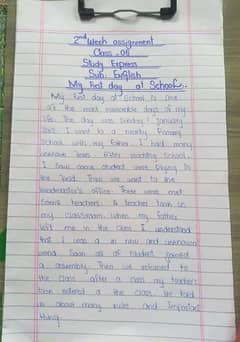 2nd Week assignment
Class - 06
Study Express
Sub: English
My first day at School.
My first day at School is one
of the most memorable days of my
life. The day was Sunday 1 January
I went to a nearby Primary
School with my father. I had many
unknown After reaching School.
I saw some student were playing in
the field. Then we went to the
headmaster's office. There were met
Some teachers. A teacher took us
my classroom. When my father
left me in the class I understood
that I was a in new and unknown
world Soon all of student joined
a assembly. Then we returned to
the class after a class my teachers
entered a the class. He told
us about many rules and important
thing.